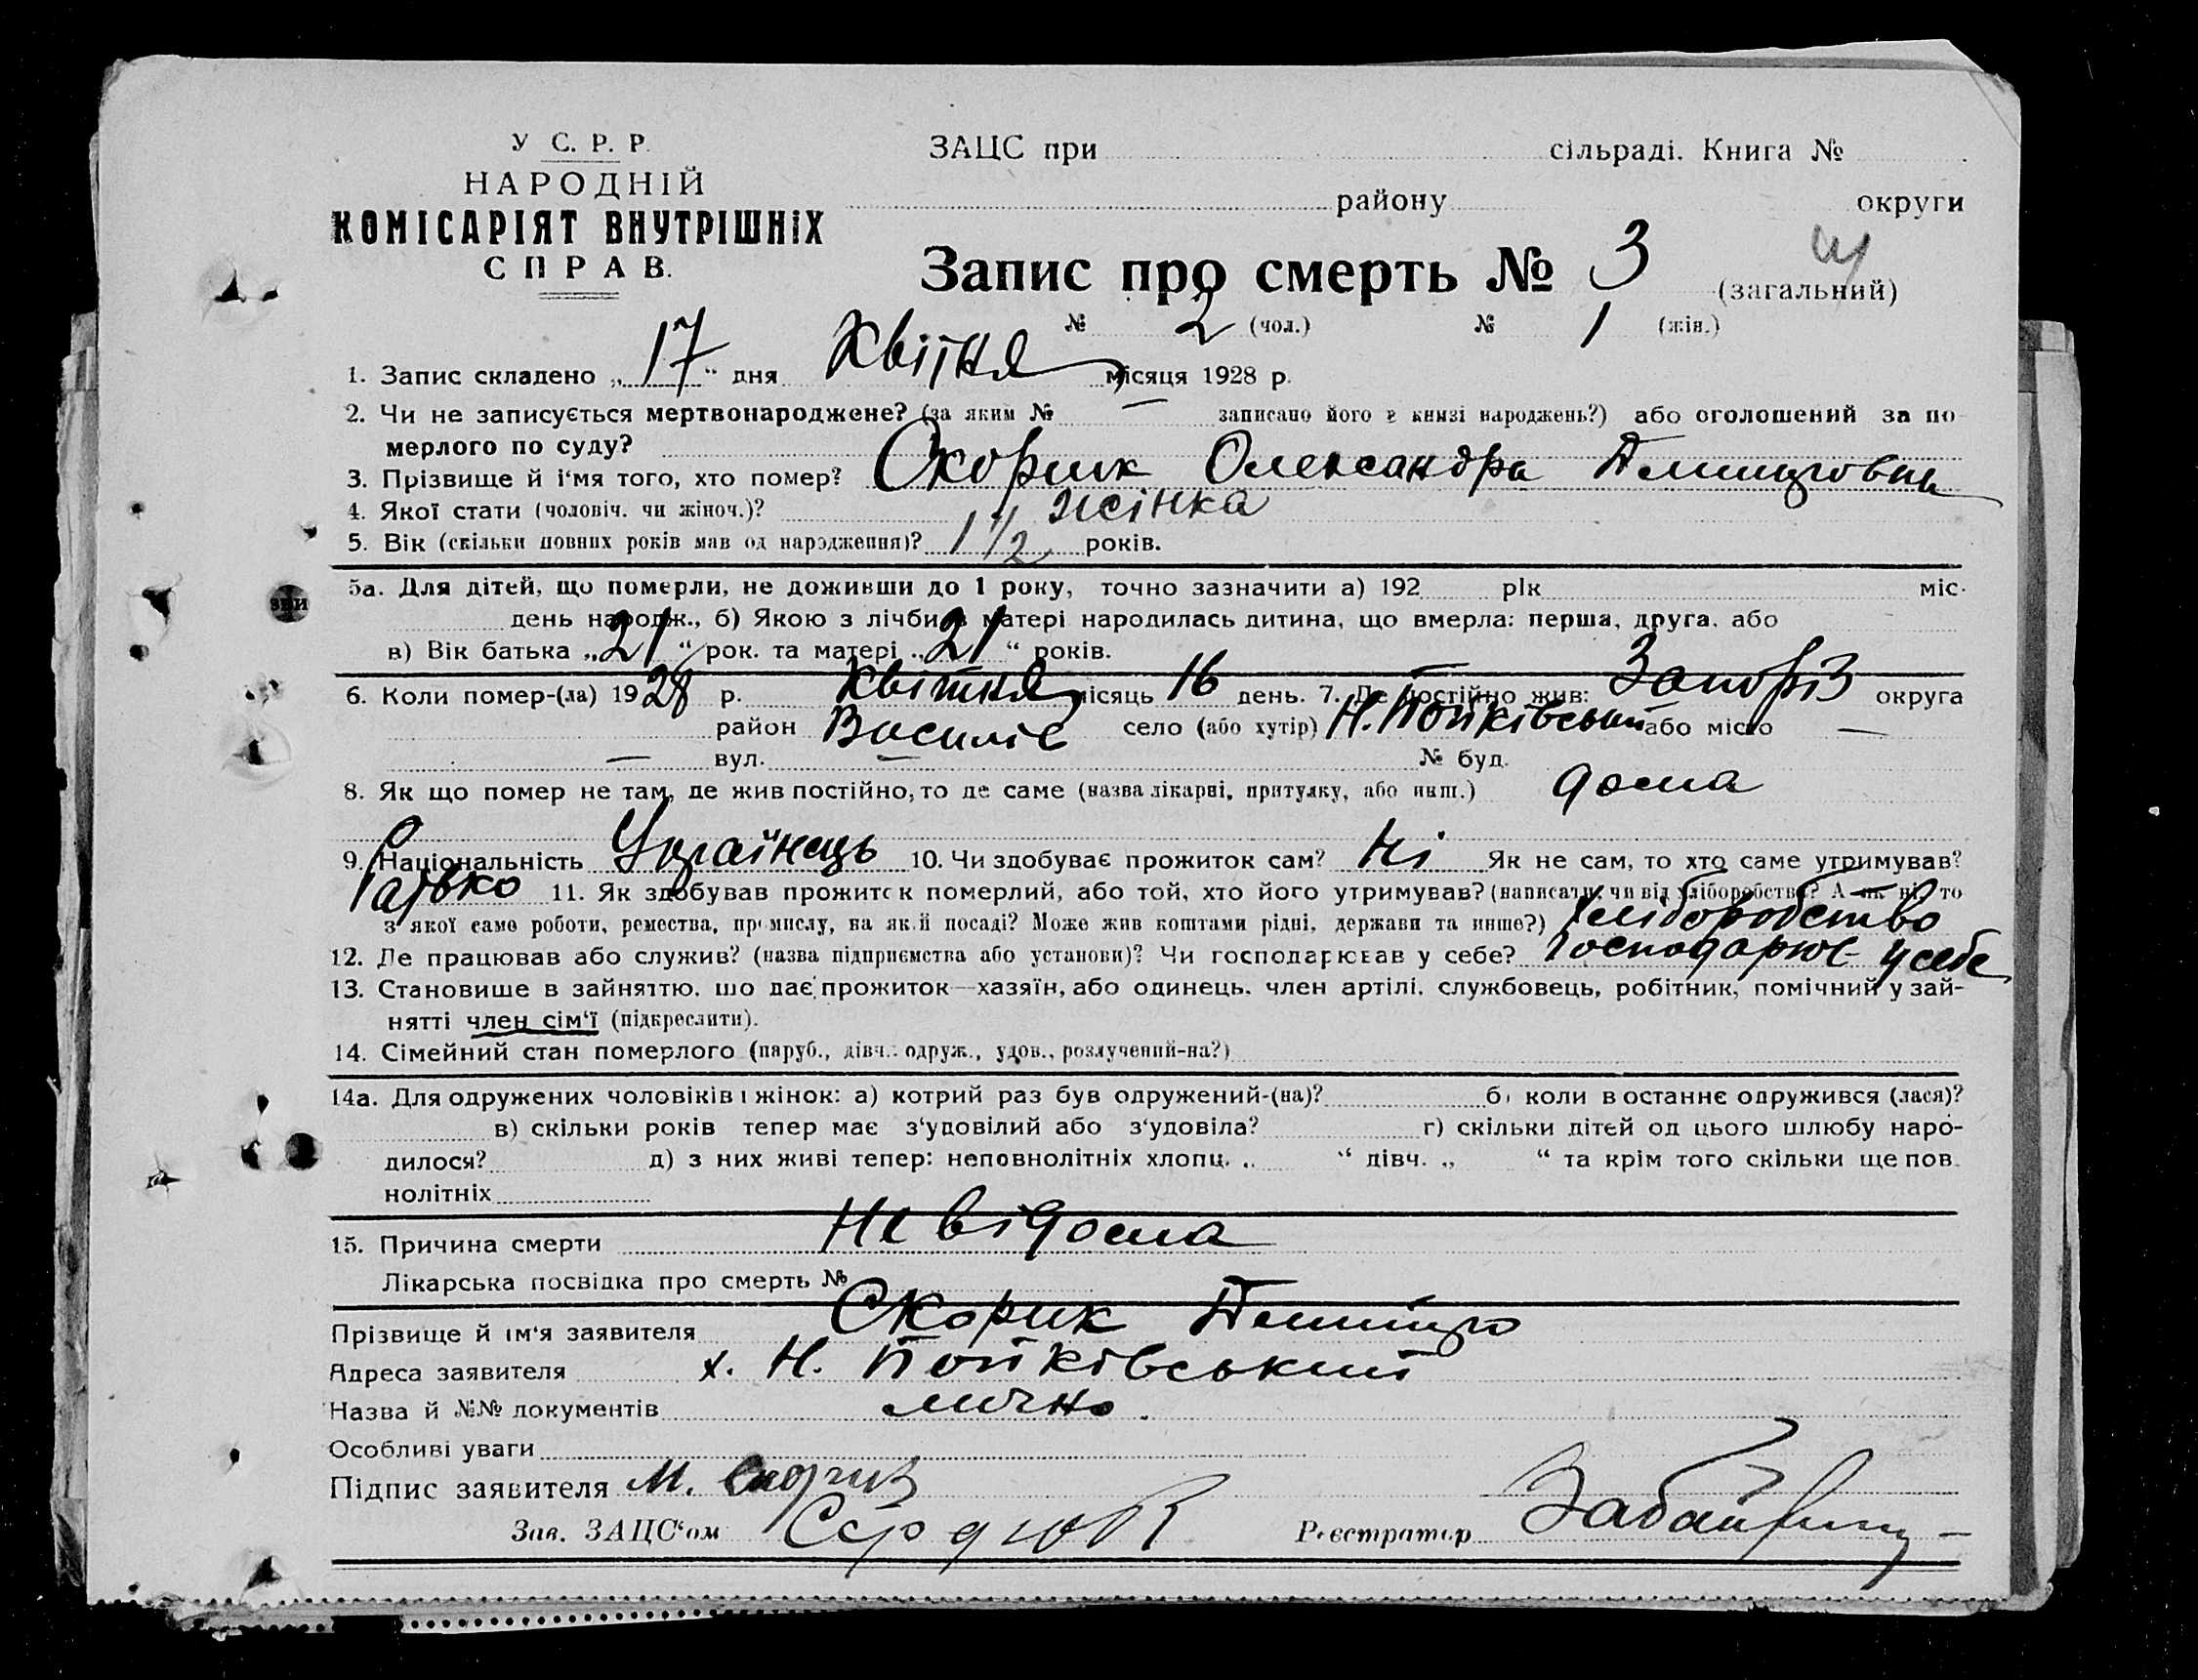 У С. Р. Р.
НАРОДНІЙ
КОМІСАРІЯТ ВНУТРІШНІХ
СПРАВ.
ЗАЦС при сільраді. Книга №
району округи
Запис про смерть № 3 (загальний)
№ 2 (чол.) № 1 (жін.)
1. Запис складено „17“ дня Квітня місяця 1928 р.
2. Чи не записується мертвонароджене? (за яким № — записано його в книзі народжень?) або оголошений за по-
мерлого по суду?
3. Прізвище й і'мя того, хто помер? Скорик Олександра
4. Якої стати (чоловіч. чи жіноч.)? жінка
5. Вік (скільки повних років мав од народження)? 1 1/2 років.
5а. Для дітей, що померли, не доживши до 1 року, точно зазначити а) 192 рік міс.
день народж., б) Якою з лічби в матері народилась дитина, що вмерла: перша, друга, або
в) Вік батька „21“ рок. та матері „21“ років.
6. Коли помер-(ла) 1928 р. Квітня місяць 16 день. 7. Де постійно жив: Запоріз округа
район Василів село (або хутір) Н. Попківський або місто —
— вул. — № буд.
8. Як що помер не там, де жив постійно, то де саме (назва лікарні, притулку, або инш.) дома
9. Національність Українець 10. Чи здобуває прожиток сам? Ні Як не сам, то хто саме утримував?
Батько 11. Як здобував прожиток померлий, або той, хто його утримував? (написати, чи від хліборобства? А як ні, то
з якої саме роботи, ремества, промислу, на якій посаді? Може жив коштами рідні, держави та инше?) Хліборобство
12. Де працював або служив? (назва підприємства або установи)? Чи господарював у себе? Господарює у себе
13. Становище в зайняттю, що дає прожиток—хазяїн, або одинець, член артілі, службовець, робітник, помічний у зай-
нятті член сім'ї (підкреслити).
14. Сімейний стан померлого (паруб., дівч., одруж., удов., розлучений-на?)
14а. Для одружених чоловіків і жінок: а) котрий раз був одружений-(на)? б) коли востаннє одружився (лася)?
в) скільки років тепер має з'удовілий або з'удовіла? г) скільки дітей од цього шлюбу наро-
дилося? д) з них живі тепер: неповнолітніх хлопц. „ “ дівч. „ “ та крім того скільки ще пов
нолітніх
15. Причина смерти невідома
Лікарська посвідка про смерть №
Прізвище й ім'я заявителя Скорик
Адреса заявителя х. Н. Попківський
Назва й №№ документів лично
Особливі уваги
Підпис заявителя М. Скорик
Зав. ЗАЦС'ом Сердюк Реєстратор